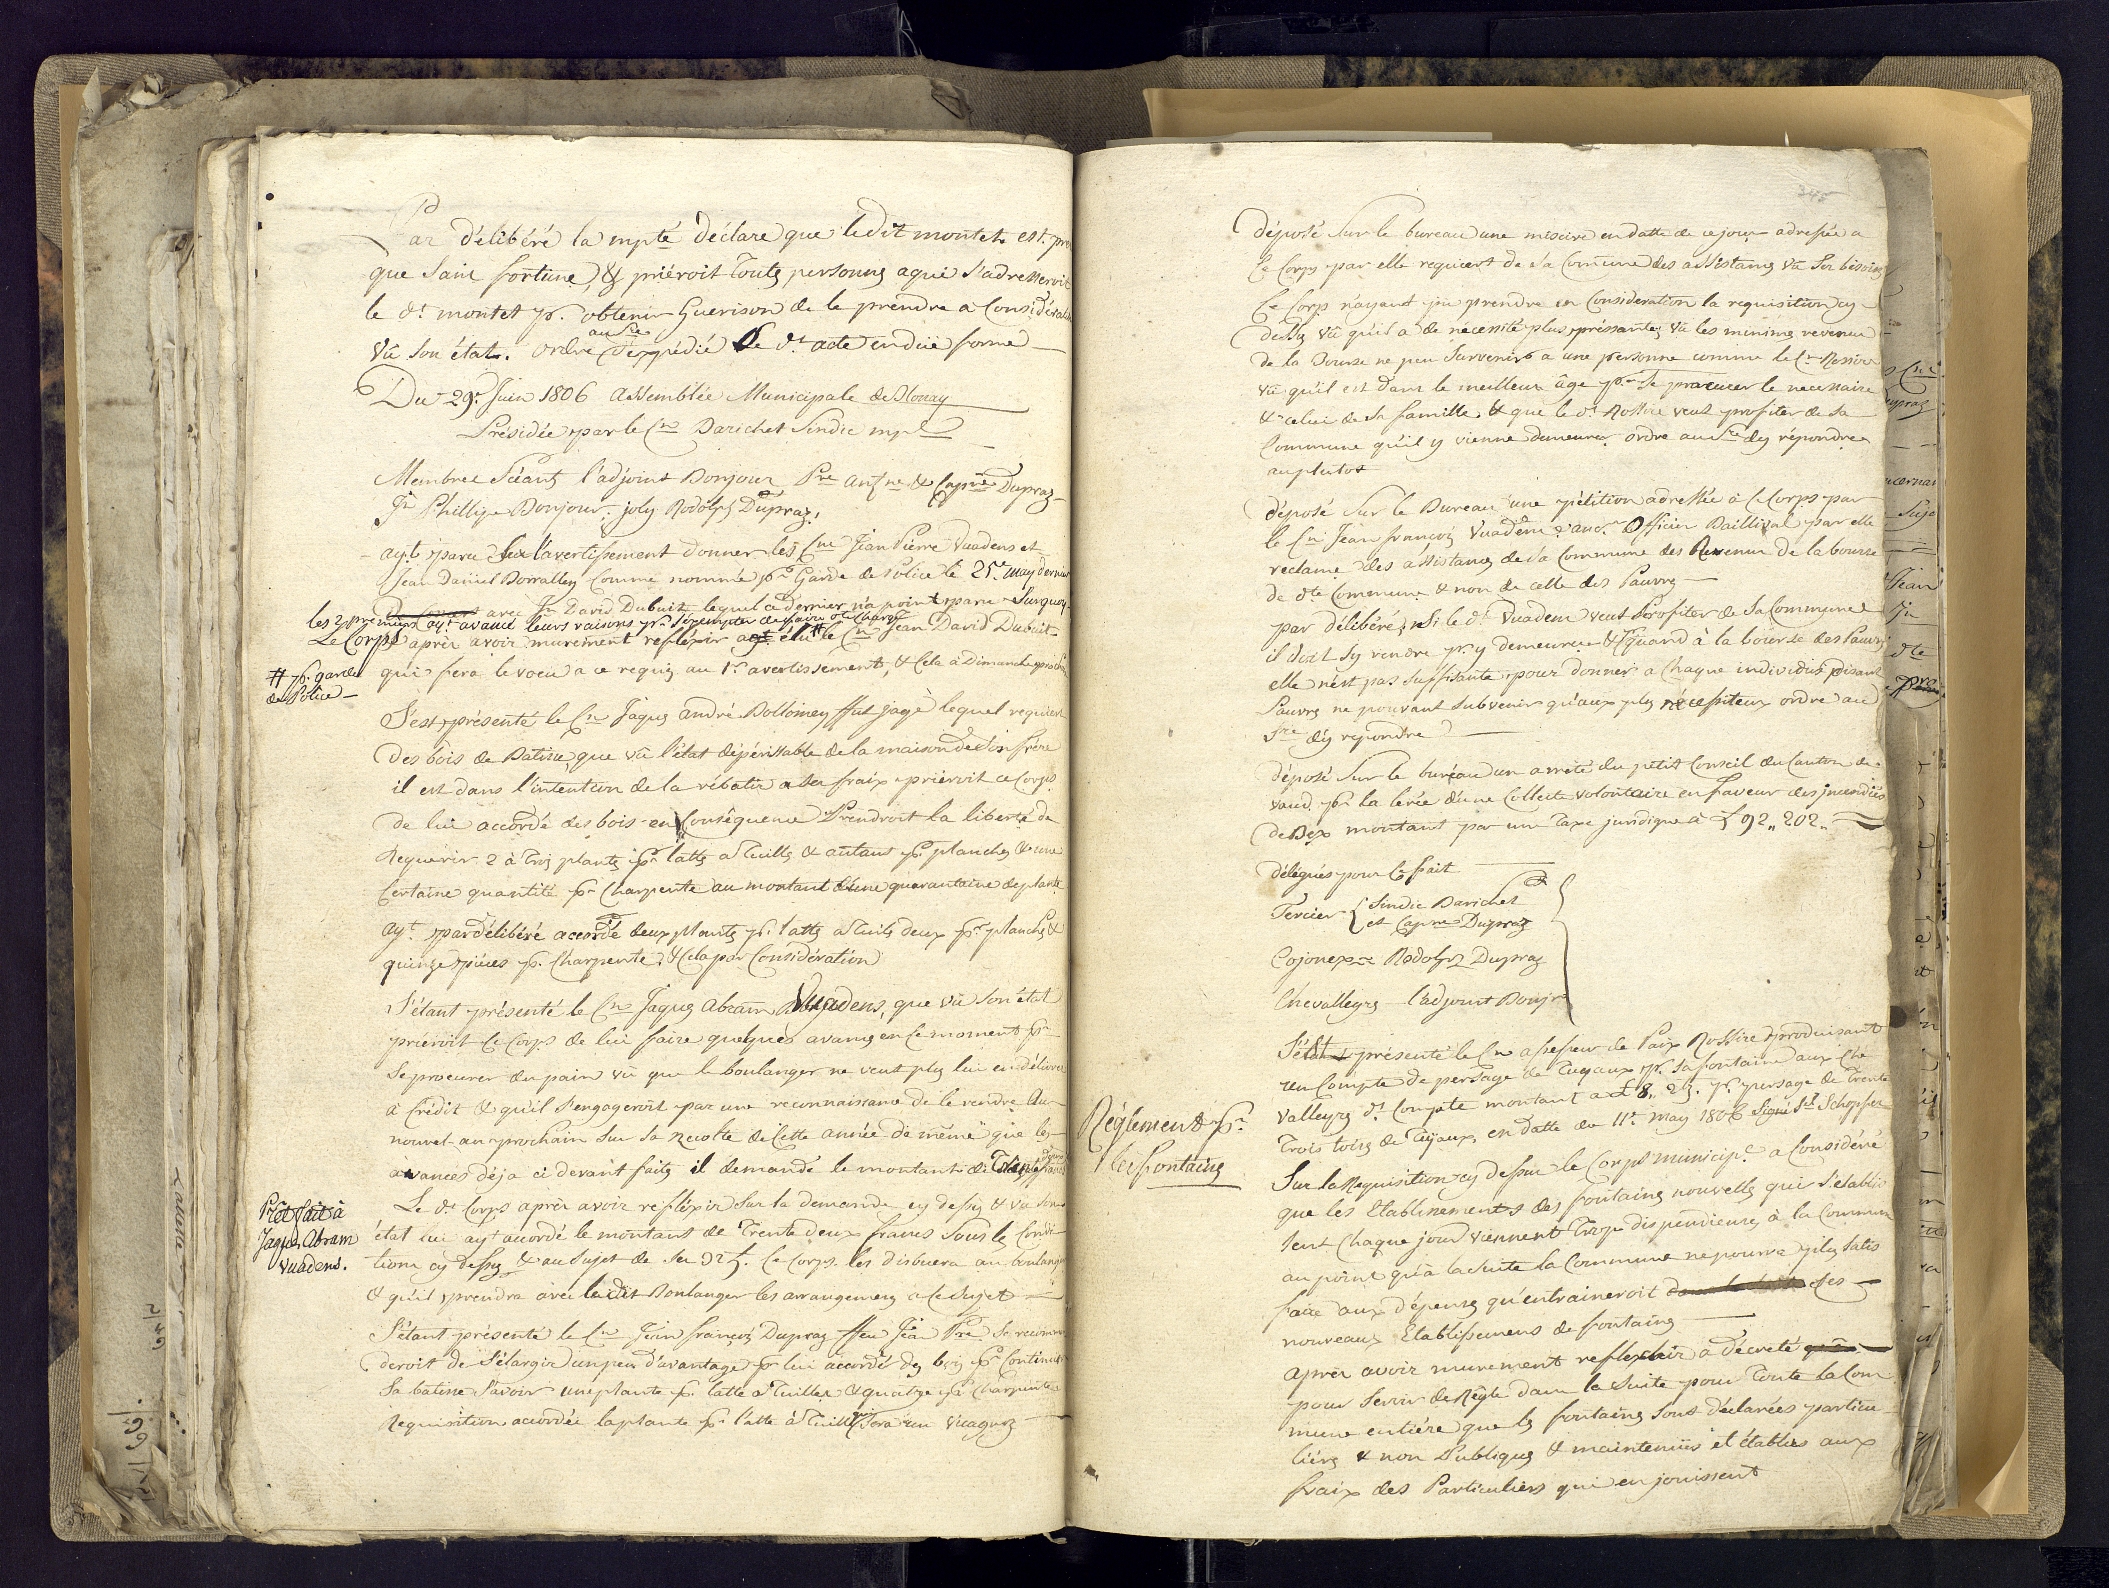 Par délibéré la mpté déclare que ledit montet est pres
que sans fortune, & priéroit toutes personnes a qui s'adresseroit
le dt. montet pr. obtenir Guerison de le prendre a Considération
vû son état. ordre au Sre d'expédié le dt acte en düe forme
Du 29e. Juin 1806 assemblée Municipale de Blonay
Présidée par le Cn Darichet Sindic mpl
Membres Séants l'adjoint Bonjour Pre Antne & Capne Dupraz
Jn Phillipe Bonjour, joly Rodolph Dupraz.
ayt. paru Sur l'avertissement donner les Cns Jean Pierre Vuadens et
Jean Daniel Borralley Comme nommés pr Garde de Police le 25e may dernier
avec Jn David Dubuit lequel ce dernier n'a point paru Surquoy
les 2 premiers ayt. avancé leurs raisons pr. s'exempter de faire cte Charge
Le Corps après avoir murement refléxir a élu # le Cn Jean David Dubuit
# pr. garde
de Police
qui fera le voeu a ce requis au 1er avertissement, & Cela à Dimanche prochain
S'est présenté le Cn Jaques andré Bollomey ffut jagé lequel requiert
des bois de Batise, que vû l'état dépérissable de la maison de son frère
il est dans l'intention de la rébatir a ses fraix priéroit ce Corps
de lui accordé des bois en Conséquence Prendroit la liberté de
Requérir 2 à trois plantes pr lattes a Tuilles & autant pr. planches & une
Certaine quantité pr Charpente au montant d'une quarantaine de plante
ayt. par délibéré accordé deux plantes pr. lattes a Tuiles deux pr planches &
quinze pièces pr. Charpente, & Cela par Considération
S'étant présenté le Cn Jaques Abram Vuadens, que vû son état
priéroit Ce Corps de lui faire quelques avances en ce moment pr
se procurer du pain vû que le boulanger ne veut plus lui en délivrer
à Crédit & qu'il s'engageroit par une reconnaissance de le rendre Au
nouvel-an prochain sur sa Recolte de Cette année de même que les
avances déja ci devant faites il demande le montant de
Prêt fait à
Jaques Abram
Vuadens.
Le dt. Corps après avoir refléxir Sur la demande cy dessus & vu son
état lui ayt accordé le montant de Trente deux francs Sous les Condi
tions cy dessus & au Sujet de Ses 32 f. Ce Corps les disbuera au boulanger
& qu'il prendra avec ledit Boulanger les arrangemens a ce Sujet
S'étant présenté le Cn Jean françois Dupraz ffeu Jean Pre Se recomman
deroit de S'élargir un peu d'avantage pr lui accordé des bois pr Continuer
Sa batisse Savoir une plante pr. latte a Tuilles & quatre pr Charpente
Requisition accordée la plante pr. l'atte à Tuilles sera un
345
déposé Sur le bureau une missive en datte de ce jour adressée a
Ce Corps par elle requiert de Sa Commune des assistances vû Ses bésoins
Ce Corps nayant pu prendre en Consideration la requisition cy
dessus vû qu'il a de nécessité plus préssantes vû les minimes revenus
de la Bourse ne peu Survenir a une personne comme le Cn Rossier
vû qu'il est dans le meilleur âge pr Se procurer le necessaire
& celui de Sa famille, & que le dt Rossire veut profiter de Sa
Commune qu'il y vienne demeurer ordre au Sre d'y répondre
au plutot
déposé Sur le Bureau une pétition adressée à Ce Corps par
le Cn Jean françois Vuadens anc. Officier Baillival par elle
reclame des assistances de Sa Commune des Revenus de la bourse
de dte Commune & non de celle des Pauvres
par délibéré, Si le dt Vuadens veut Profiter de Sa Commune
il doit Sy rendre pr. y demeurer & quand à la bourse des Pauvres
elle n'est pas Suffisante pour donner a Chaque individus disant
Pauvres ne pouvant Subvenir qu'aux plus nécessiteux ordre au
Sre d'y repondre
déposé Sur le buréau un arrêté du petit Conseil du Canton de
vaud pr la levée d'une Collecte volontaire en faveur des jncendiés
de Bex montant par une Taxe juridique à £ 92,, 202,,
délégués pour Ce fait
Tercier { Sindic Darichet
et Capne Dupraz
Cojonex Rodolph Dupraz
Chevalleyres l'adjoint Bonjr
S'est présenté le Cn assesseur de Paix Rossire produisant
un Compte de persage de Tuyaux pr. Sa fontaine aux Che
valleyres dt. Compte montant a £ 8,, 2 s. pr persage de Trente
Trois toises de Tuyaux, en datte du 11e May 1806 Signé Sl Schopfer
Réglement pr.
les fontaines
Sur la Requisition cy dessus le Corps municipl a Considéré
que les Etablissements des fontaines nouvelles qui S'établis
sent Chaque jour viennent Trop dispendieuses à la Commune
au point qu'à la Suite la Commune ne pourra plus Satis
faire aux dépenses qu'entraineroit des
nouveaux Etablissemens de fontaines
Après avoir murement reflexir a décreté
pour Servir de Régle dans la Suite pour Toute la Com
mune entière que les fontaines Sont déclarées particu
lières & non Publiques & maintenües et établies aux
fraix des Particuliers qui en jouissent